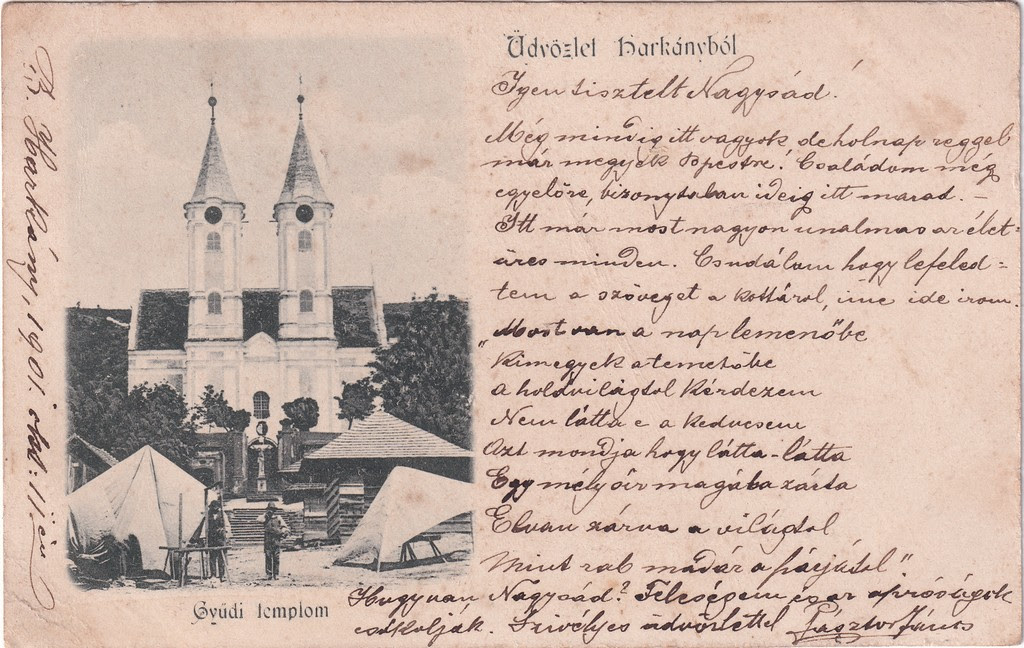 Üdvözlet Harkányból
Igen tisztelt Nagysád.
Még mindig itt vagyok, de holnap reggel
már megyek Bpestre! Családom még
egyelőre, bizonytalan ideig itt marad. –
Itt már most nagyon unalmas az élet
üres minden. Csudálom hogy lefeled=
tem a szöveget a kottáról, ime ide irom.
„Most van a nap lemenőbe
Kimegyek a temetőbe
a holdvilágtol kérdezem
Nem látta e a kedvesem
Azt mondja hogy látta-látta
Egy mély sir magába zárta
Elvan zárva a világtol
Mint rab madár a párjától"
Hogy van Nagysád? Feleségem és az apróságok
csókolják. Szivélyes üdvözlettel Pásztor János
Gyűdi templom
Harkány, 1901. okt: 11 én